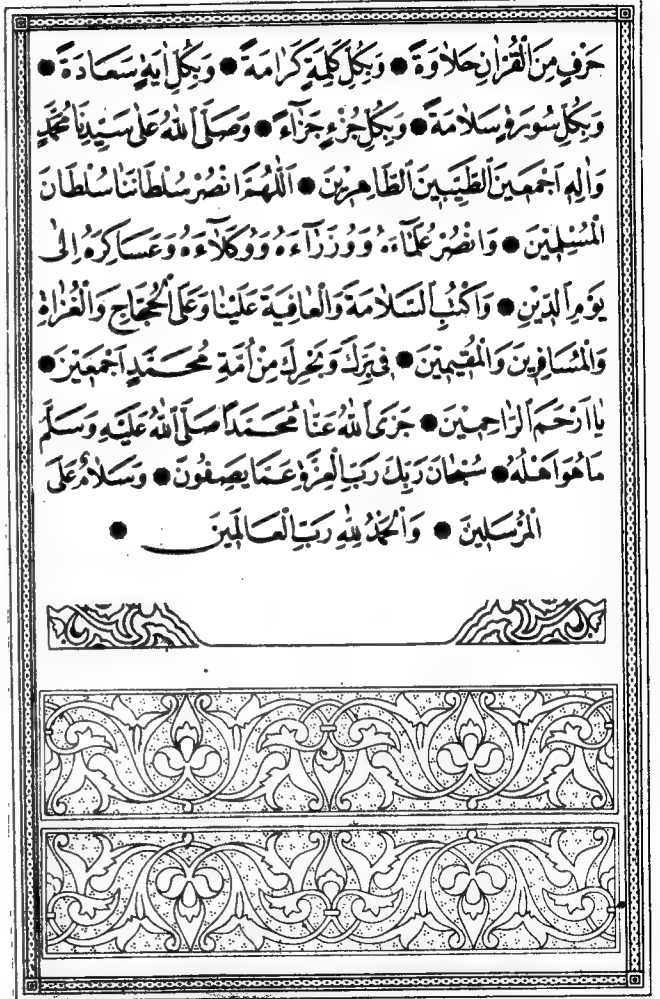 حَرْفٍ مِنَ الْقُرْاٰنِ حَلَاوَةً ● وَبِكُلِّ كَلِمَةٍ كَرَامَةً ● وَبِكُلِّ اٰيَةٍ سَعَادَةً ●
وَبِكُلِّ سُورَةٍ سَلَامَةً ● وَبِكُلِّ جُزْءٍ جَزَآءً ● وَصَلَّى اللّٰهُ عَلٰى سَيِّدِنَا مُحَمَّدٍ
وَاٰلِهِ اَجْمَعِينَ الطَّيِّبِينَ الطَّاهِرِينَ ● اَللّٰهُمَّ انْصُرْ سُلْطَانَنَا سُلْطَانَ
الْمُسْلِمِينَ ● وَانْصُرْ عُلَمَاءَهُ وَوُزَرَآءَهُ وَوُكَلَآءَهُ وَعَسَاكِرَهُ اِلٰى
يَوْمِ الدِّينِ ● وَاكْتُبِ السَّلَامَةَ وَالْعَافِيَةَ عَلَيْنَا وَعَلَى الْحُجَّاجِ وَالْغُزَاةِ
وَالْمُسَافِرِينَ وَالْمُقِيمِينَ ● فِى بَرِّكَ وَبَحْرِكَ مِنْ اُمَّةِ مُحَمَّدٍ اَجْمَعِينَ ●
يَا اَرْحَمَ الرَّاحِمِينَ ● جَزَى اللّٰهُ عَنَّا مُحَمَّدًا صَلَّى اللّٰهُ عَلَيْهِ وَسَلَّمَ
مَا هُوَ اَهْلُهُ ● سُبْحَانَ رَبِّكَ رَبِّ الْعِزَّةِ عَمَّا يَصِفُونَ ● وَسَلَامٌ عَلَى
الْمُرْسَلِينَ ● وَالْحَمْدُ لِلّٰهِ رَبِّ الْعَالَمِينَ ●